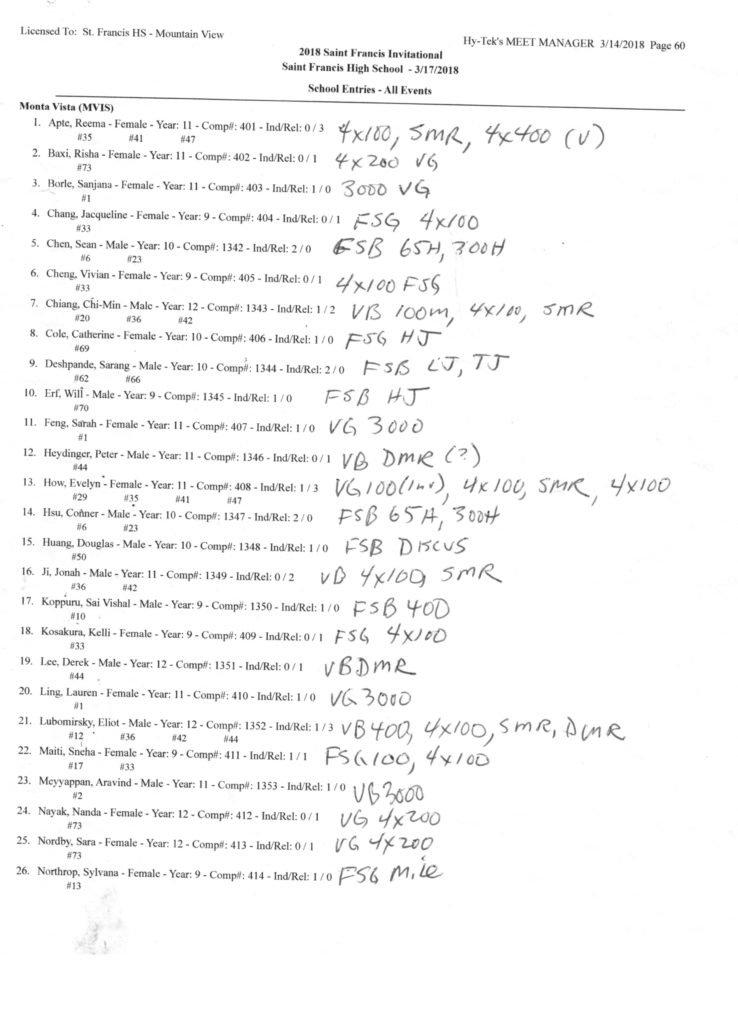 Licensed To: St. Francis HS - Mountain View
Hy-Tek's MEET MANAGER 3/14/2018 Page 60
2018 Saint Francis Invitational
Saint Francis High School - 3/17/2018
School Entries - All Events
Monta Vista (MVIS)
1. Apte, Reema - Female - Year: 11 - Comp#: 401 - Ind/Rel: 0 / 3 4x100, SMR, 4x400 (V)
#35 #41 #47
2. Baxi, Risha - Female - Year: 11 - Comp#: 402 - Ind/Rel: 0 / 1 4x200 VG
#73
3. Borle, Sanjana - Female - Year: 11 - Comp#: 403 - Ind/Rel: 1 / 0 3000 VG
#1
4. Chang, Jacqueline - Female - Year: 9 - Comp#: 404 - Ind/Rel: 0 / 1 FSG 4x100
#33
5. Chen, Sean - Male - Year: 10 - Comp#: 1342 - Ind/Rel: 2 / 0 FSB 65H, 300H
#6 #23
6. Cheng, Vivian - Female - Year: 9 - Comp#: 405 - Ind/Rel: 0 / 1 4x100 FSG
#33
7. Chiang, Chi-Min - Male - Year: 12 - Comp#: 1343 - Ind/Rel: 1 / 2 VB 100m, 4x100, SMR
#20 #36 #42
8. Cole, Catherine - Female - Year: 10 - Comp#: 406 - Ind/Rel: 1 / 0 FSG HJ
#69
9. Deshpande, Sarang - Male - Year: 10 - Comp#: 1344 - Ind/Rel: 2 / 0 FSB LJ, TJ
#62 #66
10. Erf, Will - Male - Year: 9 - Comp#: 1345 - Ind/Rel: 1 / 0 FSB HJ
#70
11. Feng, Sarah - Female - Year: 11 - Comp#: 407 - Ind/Rel: 1 / 0 VG 3000
#1
12. Heydinger, Peter - Male - Year: 11 - Comp#: 1346 - Ind/Rel: 0 / 1 VB DMR (?)
#44
13. How, Evelyn - Female - Year: 11 - Comp#: 408 - Ind/Rel: 1 / 3 VG100(Inv), 4x100, SMR, 4x100
#29 #35 #41 #47
14. Hsu, Conner - Male - Year: 10 - Comp#: 1347 - Ind/Rel: 2 / 0 FSB 65H, 300H
#6 #23
15. Huang, Douglas - Male - Year: 10 - Comp#: 1348 - Ind/Rel: 1 / 0 FSB DISCUS
#50
16. Ji, Jonah - Male - Year: 11 - Comp#: 1349 - Ind/Rel: 0 / 2 VB 4x100, SMR
#36 #42
17. Koppuru, Sai Vishal - Male - Year: 9 - Comp#: 1350 - Ind/Rel: 1 / 0 FSB 400
#10
18. Kosakura, Kelli - Female - Year: 9 - Comp#: 409 - Ind/Rel: 0 / 1 FSG 4x100
#33
19. Lee, Derek - Male - Year: 12 - Comp#: 1351 - Ind/Rel: 0 / 1 VBDMR
#44
20. Ling, Lauren - Female - Year: 11 - Comp#: 410 - Ind/Rel: 1 / 0 VG3000
#1
21. Lubomirsky, Eliot - Male - Year: 12 - Comp#: 1352 - Ind/Rel: 1 / 3 VB400, 4x100, SMR, DMR
#12 #36 #42 #44
22. Maiti, Sneha - Female - Year: 9 - Comp#: 411 - Ind/Rel: 1 / 1 FSG100, 4x100
#17 #33
23. Meyyappan, Aravind - Male - Year: 11 - Comp#: 1353 - Ind/Rel: 1 / 0 VB3000
#2
24. Nayak, Nanda - Female - Year: 12 - Comp#: 412 - Ind/Rel: 0 / 1 VG 4x200
#73
25. Nordby, Sara - Female - Year: 12 - Comp#: 413 - Ind/Rel: 0 / 1 VG 4x200
#73
26. Northrop, Sylvana - Female - Year: 9 - Comp#: 414 - Ind/Rel: 1 / 0 FSG Mile
#13